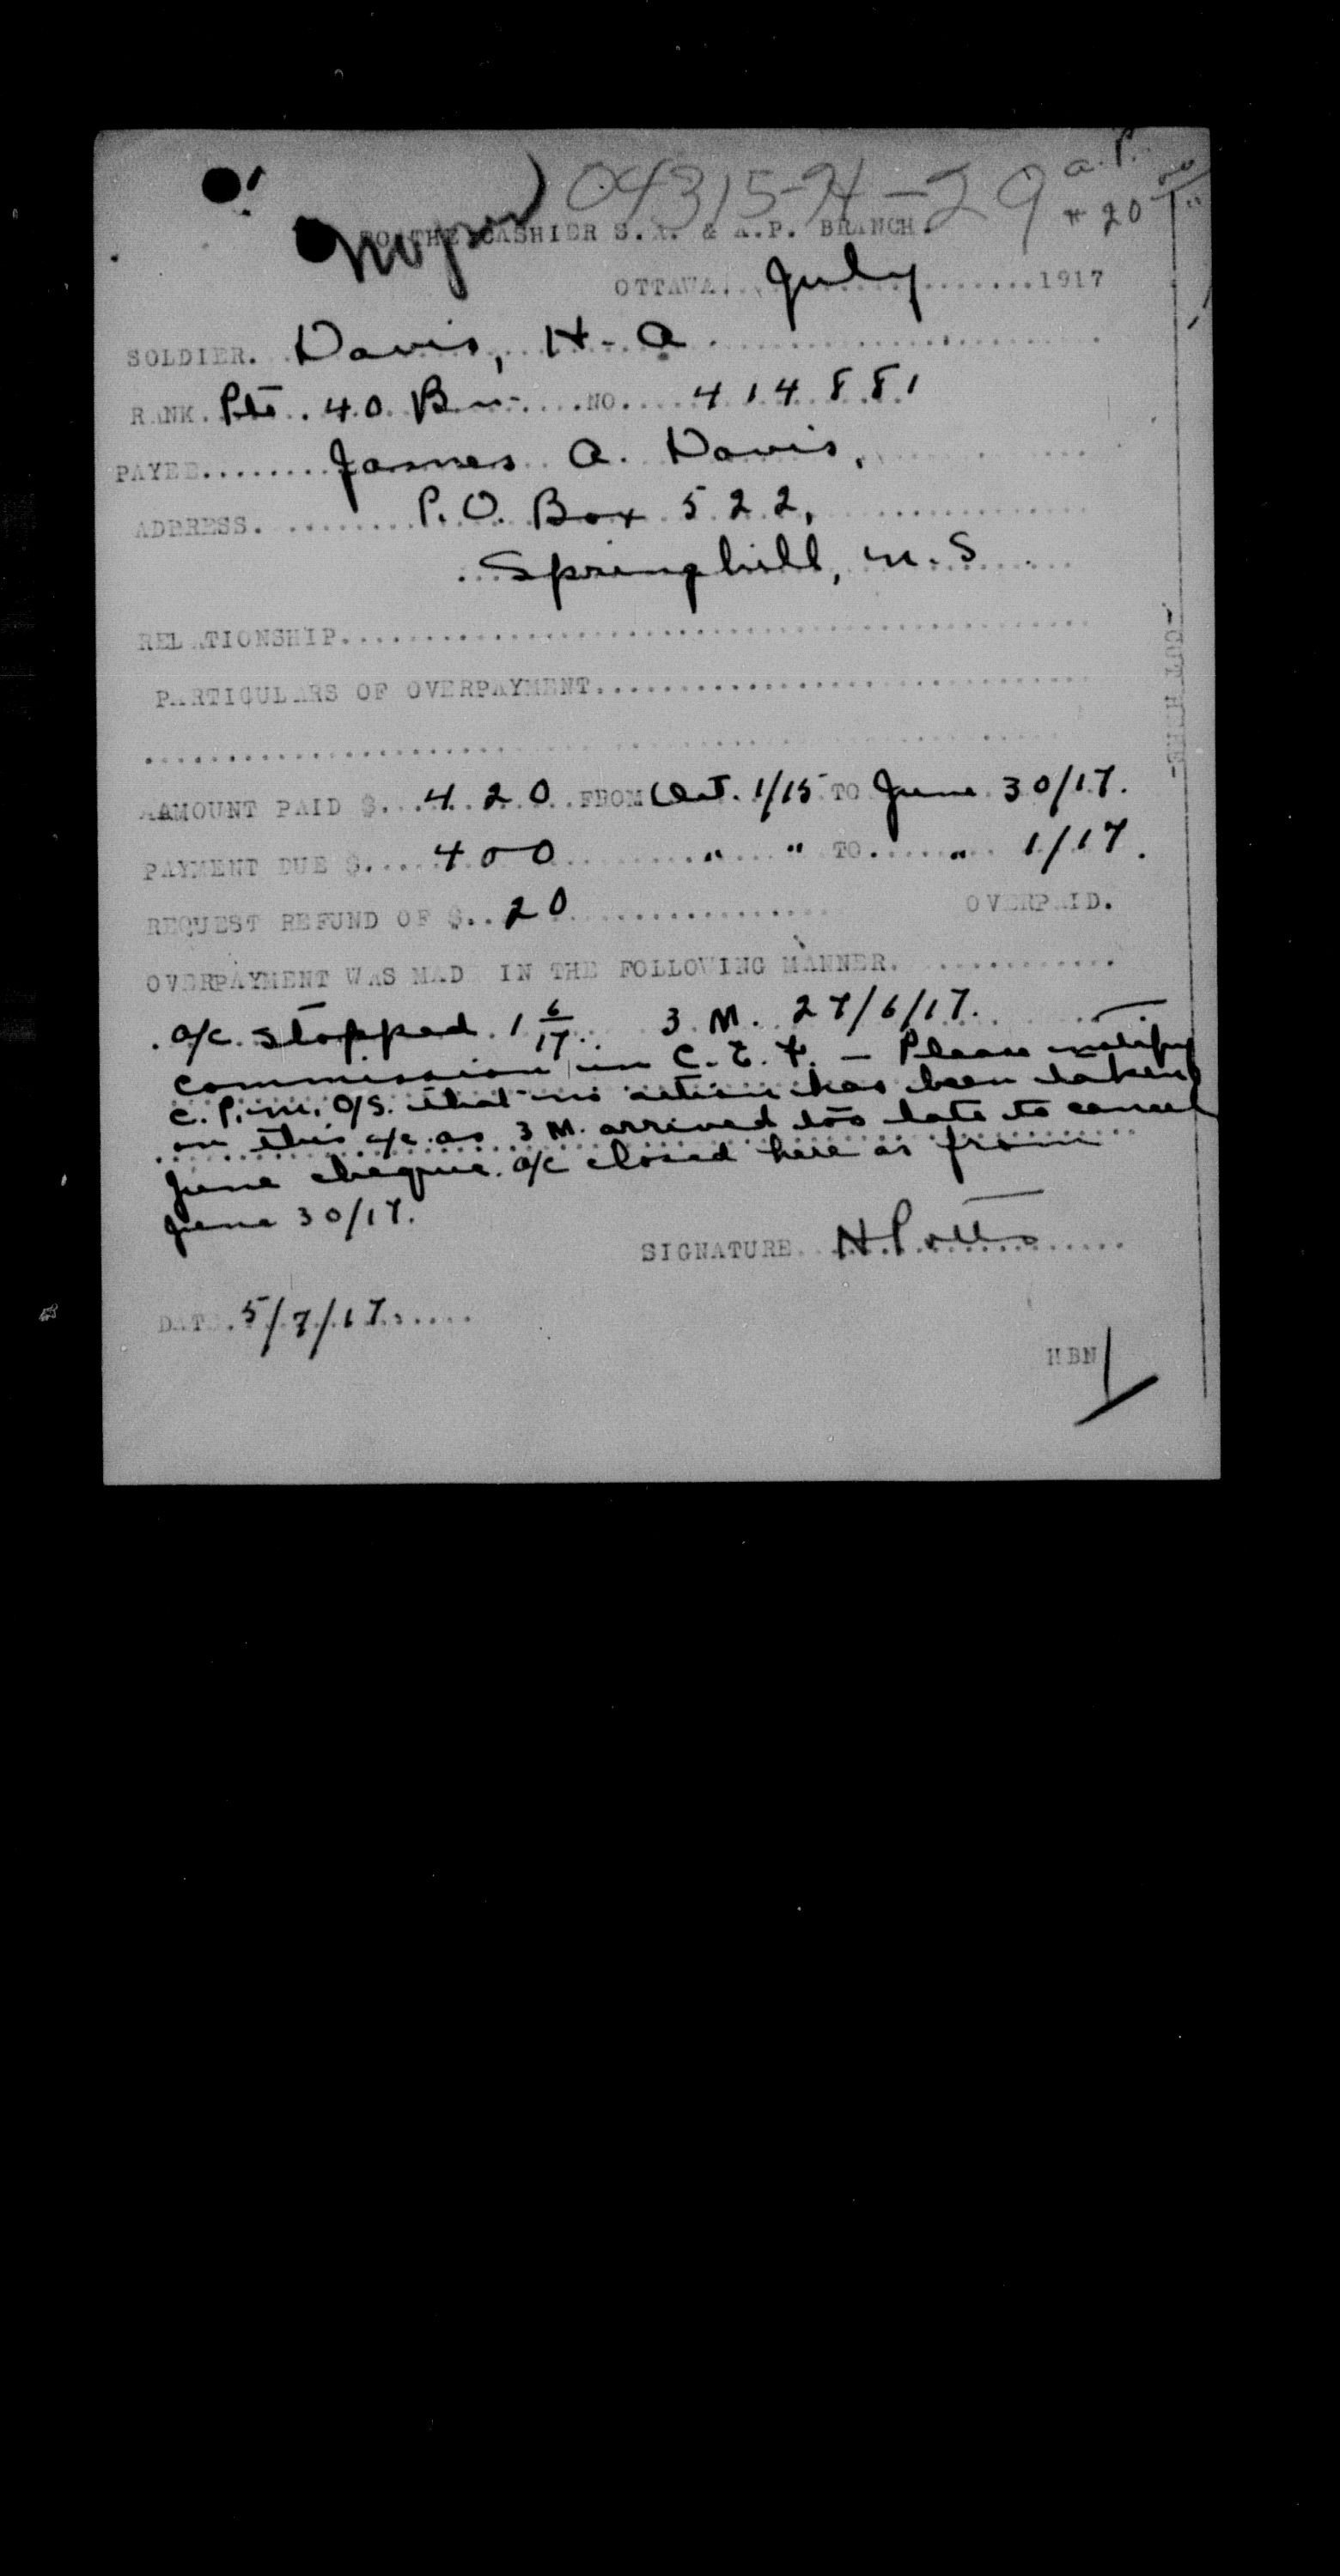 04315-H-29 a.P.
TO THE CASHIER S.A. & A.P. BRANCH. # 20 00
OTTAWA. July 1917
SOLDIER. Davis, H. A.
RANK. Pte. 40 Bn. NO. 414881
PAYEE. James A. Davis,
ADDRESS. P.O. Box 522,
Springhill, N.S.
RELATIONSHIP.
PARTICULARS OF OVERPAYMENT.
AMOUNT PAID $. 420 FROM Oct. 1/15 TO June 30/17.
PAYMENT DUE $. 400 " " TO. " 1/17.
REQUEST REFUND OF $. 20 OVERPAID.
OVERPAYMENT WAS MADE IN THE FOLLOWING MANNER.
a/c. stopped 1 6/17. 3 M. 27/6/17.
commission in C.E.F. – Please notify
C.P.M. O/S. that no action has been taken
on this a/c. as 3 M. arrived too late to cancel
June cheque. a/c closed here as from
June 30/17.
SIGNATURE. H Potts
DATE. 5/7/17.
HBN
-CUT HERE-